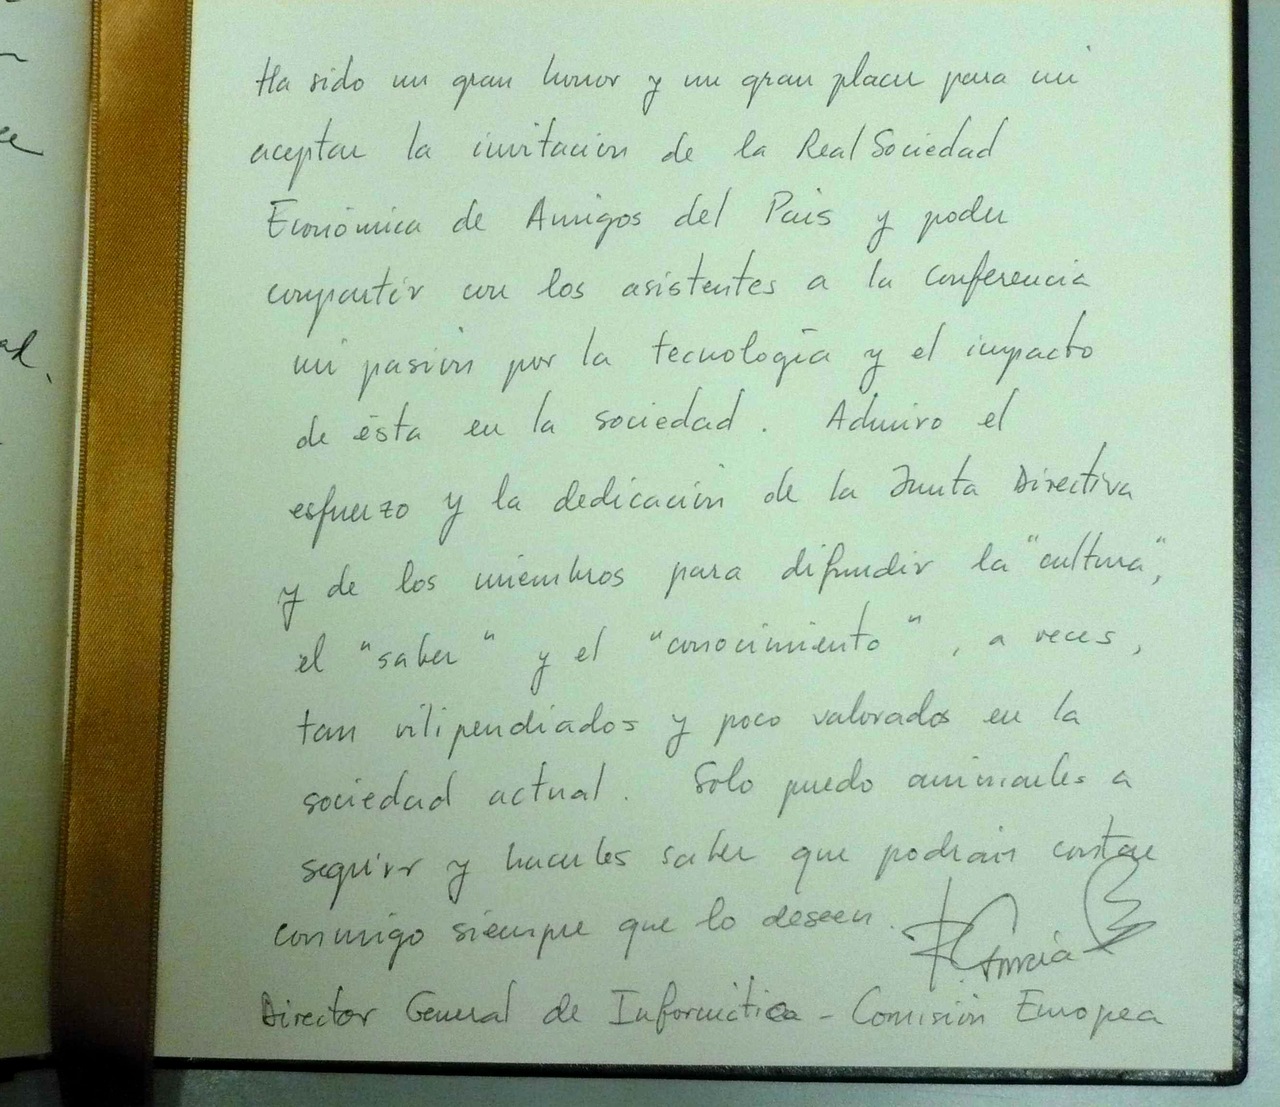 Ha sido un gran honor y un gran placer para mi
aceptar la invitación de la Real Sociedad
Económica de Amigos del País y poder
compartir con los asistentes a la conferencia
mi pasión por la tecnología y el impacto
de ésta en la sociedad. Admiro el
esfuerzo y la dedicación de la Junta Directiva
y de los miembros para difundir la "cultura",
el "saber" y el "conocimiento", a veces,
tan vilipendiados y poco valorados en la
sociedad actual. Solo puedo animarles a
seguir y hacerles saber que podrán contar
conmigo siempre que lo deseen.
García
Director General de Informática - Comisión Europea
ad.